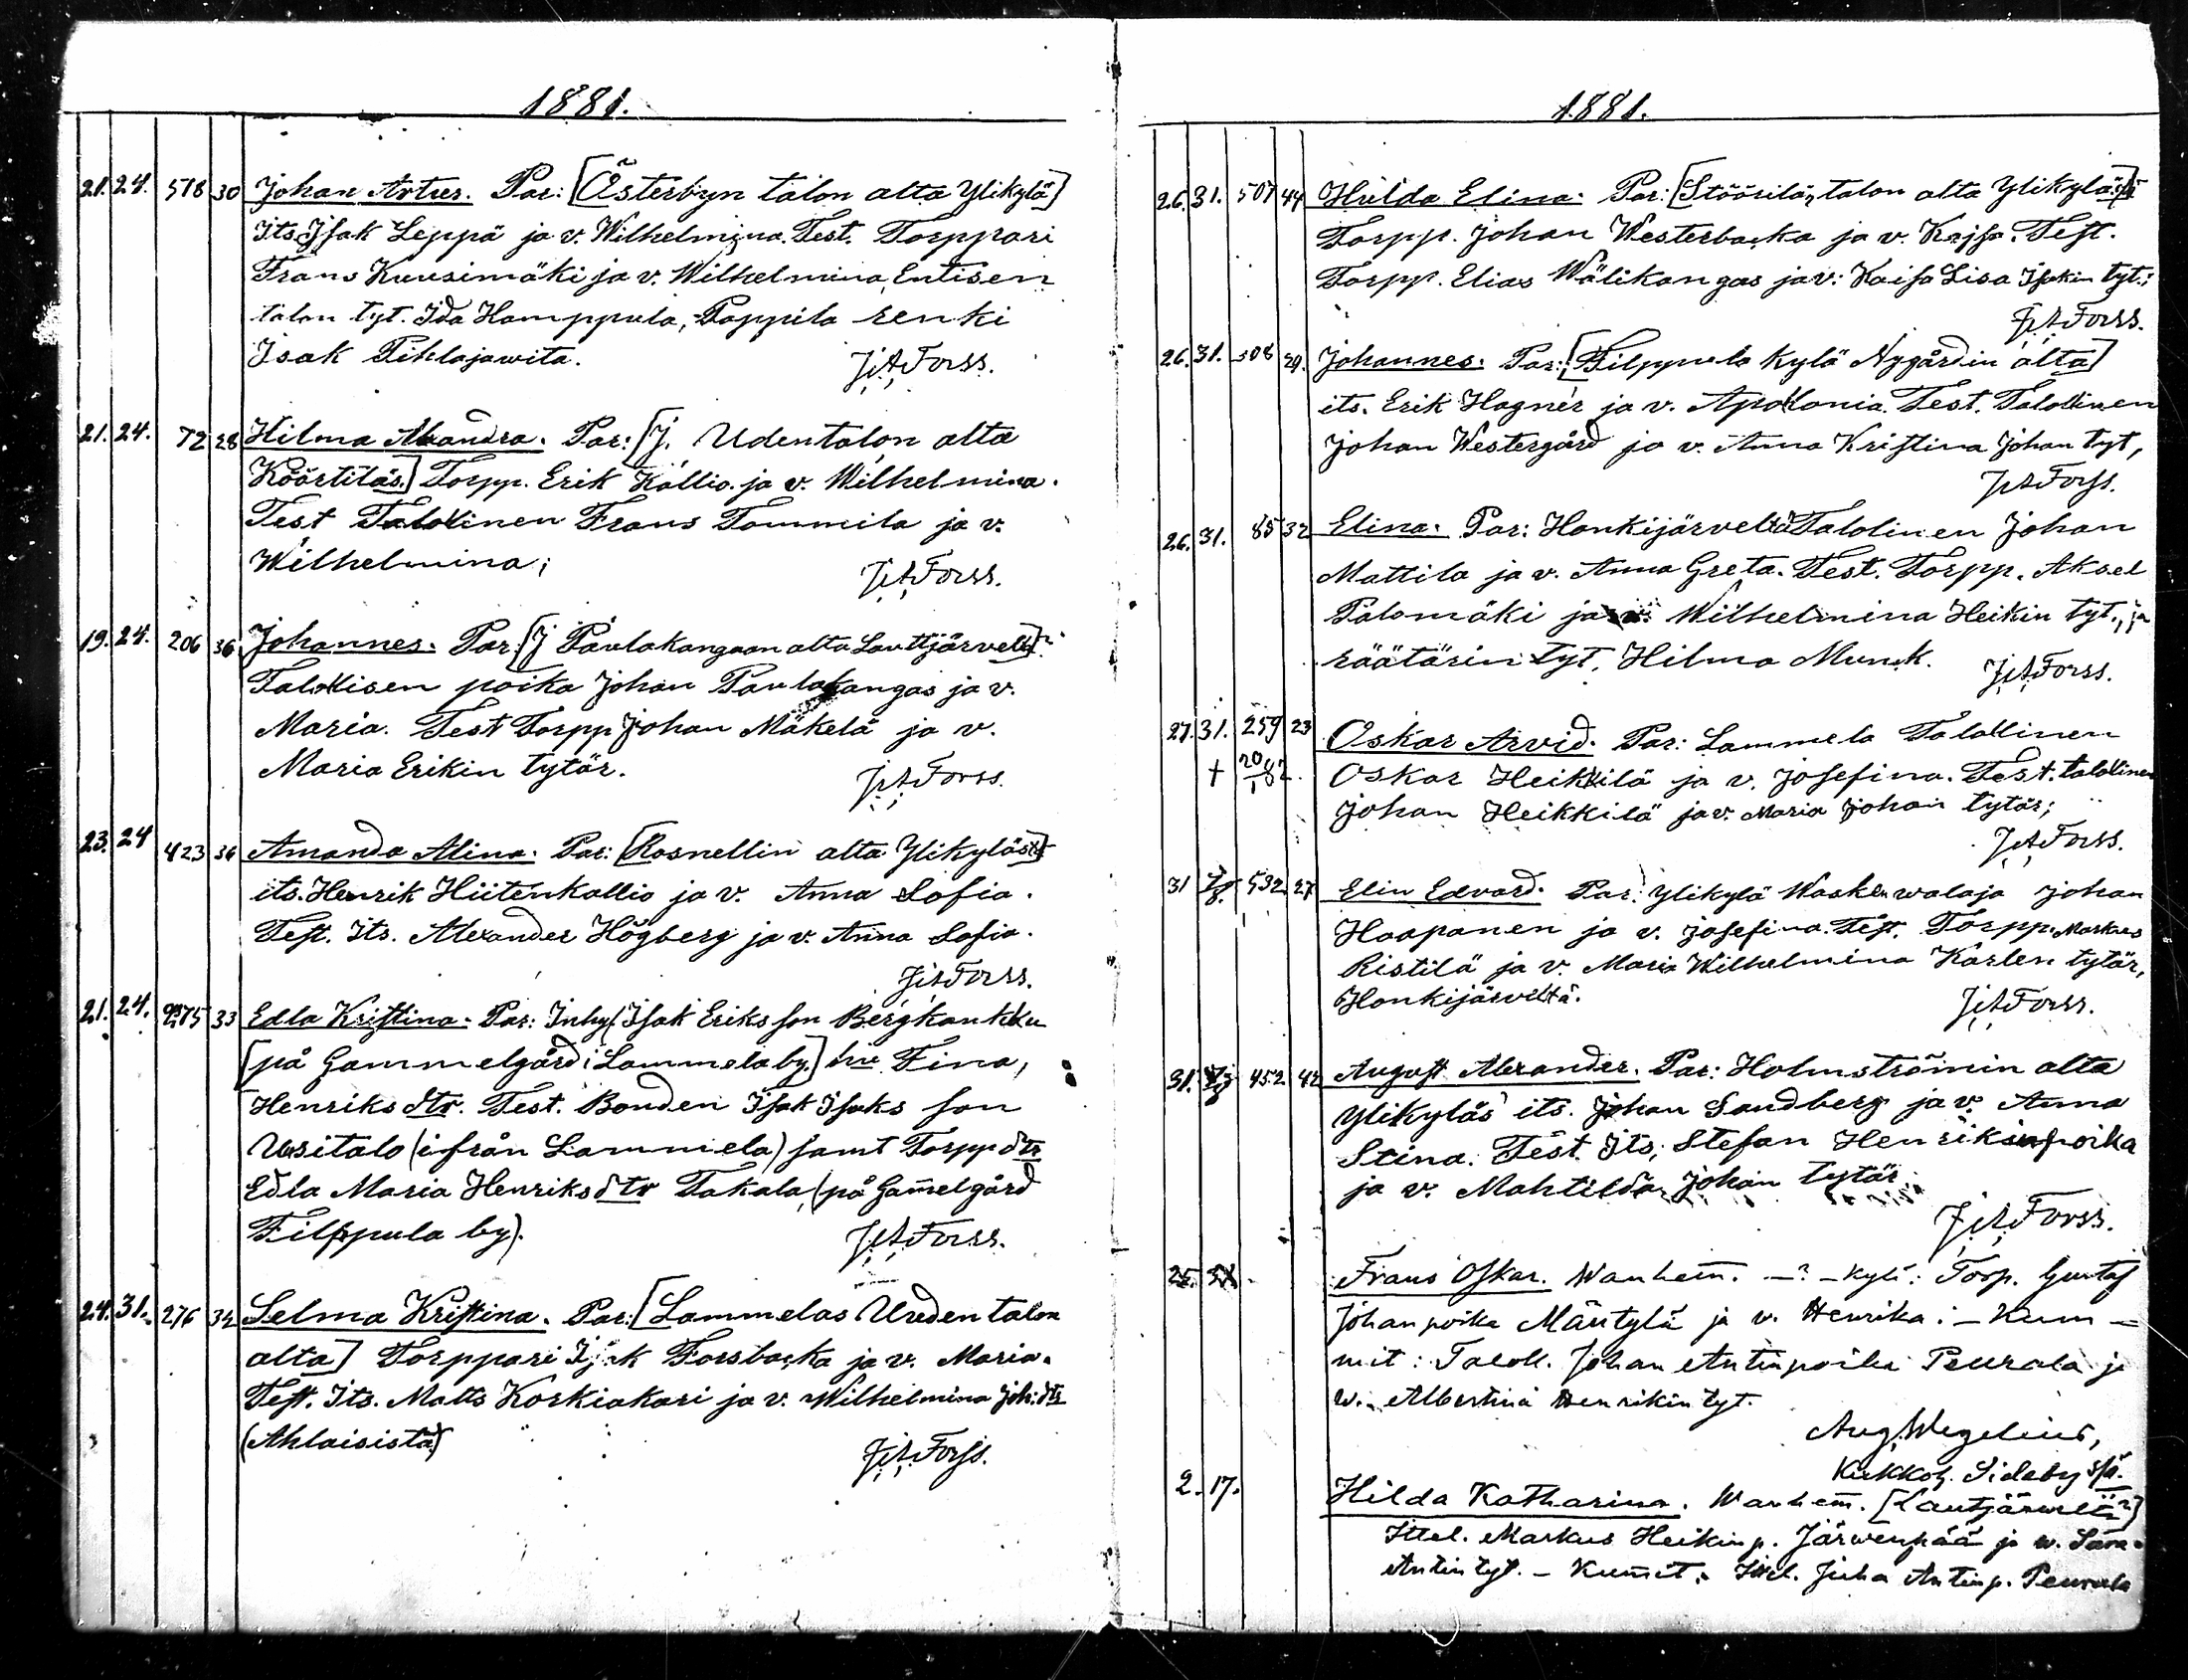 1881.
21. 24. 518 30 Johan Artur. Par: [Österbyn talon alta Ylikylä]
Its. Isak Leppä ja v. Wilhelmina. Test. Torppari
Frans Kuusimäki ja v. Wilhelmina, Entisen
talon tyt. Ida Hamppula, Pappila renki
Isak Pihlajawita. J.A.Forss.
21. 24. 72 28 Hilma Alexandra. Par: [J. Uden talon alta
Köörtiläs] Torpp. Erik Kallio ja v. Wilhelmina.
Test Talollinen Frans Tommila ja v.
Wilhelmina; J.A.Forss.
19. 24. 206 36 Johannes. Par: [J Paulakangaan alta Lauttjärvelt]
Talollisen poika Johan Paulakangas ja v.
Maria. Test Torpp Johan Mäkelä ja v.
Maria Erikin tytär. J.A.Forss.
23. 24 423 36 Amanda Alina. Par: [Rosnellin alta Ylikyläst]
its. Henrik Hiitenkallio ja v. Anna Sofia.
Test. Its. Alexander Högberg ja v. Anna Sofia.
J.A.Forss.
21. 24. 33 Edla Kristina. Par: Inhy. Isak Eriksson Bergkankku
[på Gammelgård i Lammela by.] hu Fina,
Henriksdtr. Test. Bonden Isak Isaksson
Uusitalo (ifrån Lammela) samt Torppdtr
Edla Maria Henriksdtr Takala, (på Gam̄elgård
Filppula by). J.A.Forss.
24. 31. 276 34 Selma Kristina. Par: [Lammelas Uuden talon
alta] Torppari Isak Forsbacka ja v. Maria.
Test. Its. Matts Korkiakari ja v. Wilhelmina Joh:dtr
(Ahlaisista) J.A.Forss.
1881.
26. 31. 507 44 Hulda Elina. Par: [Töörilän talon alta Ylikyläst]
Torpp. Johan Westerbacka ja v. Kajsa. Test.
Torpp. Elias Wälikangas ja v: Kaisa Lisa Isakin tyt.;
J.A.Forss.
26. 31. 508 29. Johannes. Par: [Filppula kylä Nygårdin alta]
its. Erik Hagnér ja v. Apollonia. Test. Talollinen
Johan Westergård ja v. Anna Kristina Johan tyt,
J.A.Forss.
26. 31. 85 32 Elina. Par: Honkijärveltä Talolinen Johan
Mattila ja v. Anna Greta. Test. Torpp. Aksel
Palomäki ja v. Wilhelmina Heikin tyt., ja
räätärin tyt. Hilma Munck. J.A.Forss.
27. 31. 259 23 Oskar Arvid. Par: Lammela Talollinen
† Oskar Heikkilä ja v. Josefina. Test. talollinen
Johan Heikkilä ja v. Maria Johan tytär;
J.A.Forss.
31 532 27 Elin Edvard. Par: Ylikylä Wasken walaja Johan
Haapanen ja v. Josefina. Test. Torpp. Markus
Ristilä ja v. Maria Wilhelmina Karlen tytär,
Honkijärveltä. J.A.Forss.
31. 452 42 August Alexander. Par: Holmströmin alta
Ylikyläs its. Johan Sandberg ja v. Anna
Stina. Test. Its. Stefan Henrikinpoika
ja v. Mahtilda Johan tytär
J.A.Forss.
Frans Oskar. Wanhem̄. —? — kylä: Torp. Gustaf
Johanpoika Mäntylä ja v. Henrika: — Kum —
mit: Taloll. Johan Antinpoika Peurala ja
w. Albertina Henrikin tyt.
Aug. Wegelius,
Kirkkoh. Sideby ssä.
2. 17. Hilda Katharina. Wanhem̄. [Lautjärweltä]
Ittel. Markus Heikinp. Järwenpää ja w. Sara
Antin tyt. — Kum̄it: Itel. Juha Antinp. Peurala